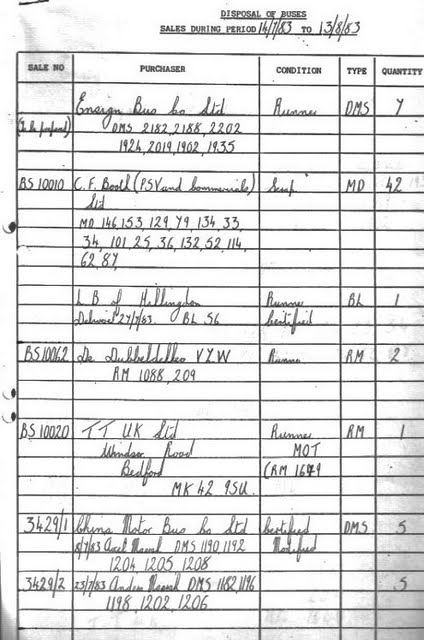 DISPOSAL OF BUSES
SALES DURING PERIOD 14/7/83 TO 13/8/83
SALE NO PURCHASER CONDITION TYPE QUANTITY
Ensign Bus Co Ltd Runner DMS 7
DMS 2182, 2188, 2202
1924, 2019, 1902, 1935
BS 10010 C.F. Booth (PSV and Commercials) Scrap MD 42
Ltd
MD 146, 153, 129, 79, 134, 33,
34, 101, 25, 36, 132, 52, 114,
62, 87,
L B of Hillingdon Runner BL 1
27/7/83. BL 56 Certified
BS 10062 De Dubbeldekker VZW Runner RM 2
RM 1088, 209
BS 10020 TT UK Ltd Runner RM 1
Windsor Road MOT
Bedford (RM 1649
MK 42 9SU.
3429/1 China Motor Bus Co Ltd Certified DMS 5
8/7/83 Axel Maersk DMS 1190, 1192 Modified
1204, 1205, 1208
3429/2 23/7/83 Anders Maersk DMS 1182, 1196 5
1198, 1202, 1206